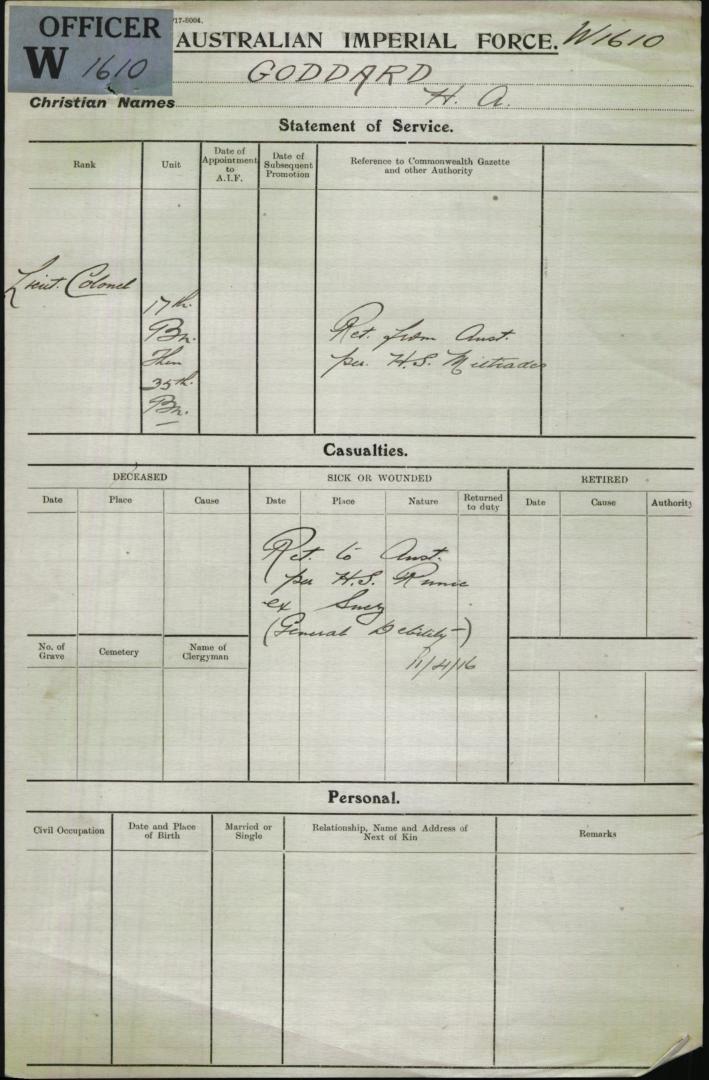 /17-5004.
OFFICER
W 1610
AUSTRALIAN IMPERIAL FORCE. W1610
GODDARD
Christian Names H. A.
Statement of Service.
Rank Unit Date of Appointment to A.I.F. Date of Subsequent Promotion Reference to Commonwealth Gazette and other Authority
Lieut. Colonel
17th. Bn. Then 35th. Bn.
Ret. from Aust.
per. H.S. Miltiades
Casualties.
DECEASED SICK OR WOUNDED RETIRED
Date Place Cause Date Place Nature Returned to duty Date Cause Authority
Ret. to Aust.
per H.S. Runic
ex Suez
(General Debility)
11/4/16
No. of Grave Cemetery Name of Clergyman
Personal.
Civil Occupation Date and Place of Birth Married or Single Relationship, Name and Address of Next of Kin Remarks